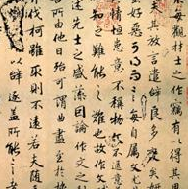 每觀材士之作竊有以
夫其放言遣辭良多變矣
好惡可得而言每自屬文
情恒患意不稱物文不逮意
知之難能之難也故作文
述先士之盛藻因論作文
所由他日殆可謂曲盡至於
伐柯雖取則不遠若夫隨
以辭逐盖所能言